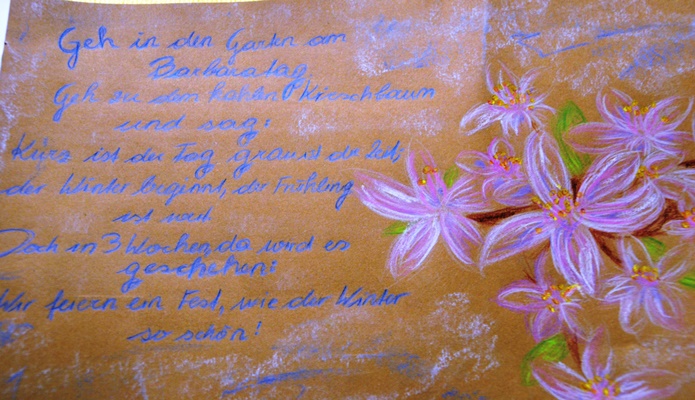 Geh in den Garten am
Barbaratag
Geh zu dem kahlen Kirschbaum
und sag:
Kurz ist der Tag grau ist die Zeit,
der Winter beginnt, der Frühling
ist weit
Doch in 3 Wochen, da wird es
geschehen:
Wir feiern ein Fest, wie der Winter
so schön!